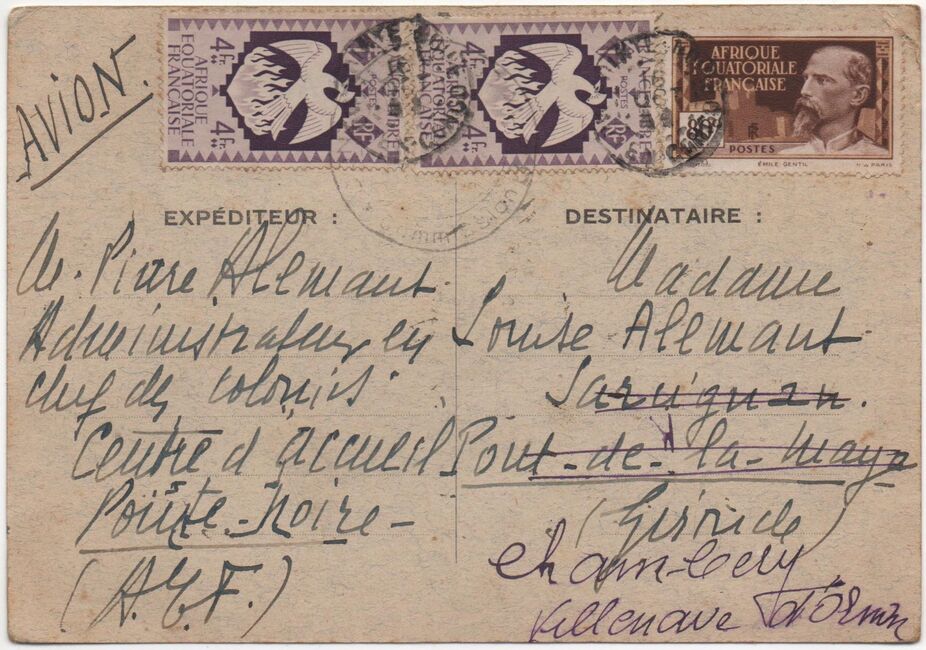 AVION.
4 Fr.
AFRIQUE
EQUATORIALE
FRANÇAISE
4 Fr.
POSTES
RF
4 Fr.
4 Fr.
POSTES
RF
AFRIQUE
EQUATORIALE
FRANÇAISE
RF
POSTES
ÉMILE GENTIL
PARIS
EXPÉDITEUR :
M. Pierre Allemant
Administrateur en
chef des colonies
Centre d'accueil
Pointe-Noire-
(A.E.F.)
DESTINATAIRE :
Madame
Louise Allemant
Pont-de-la-Maye
(Gironde)
Chambery
Villenave d'Ornon